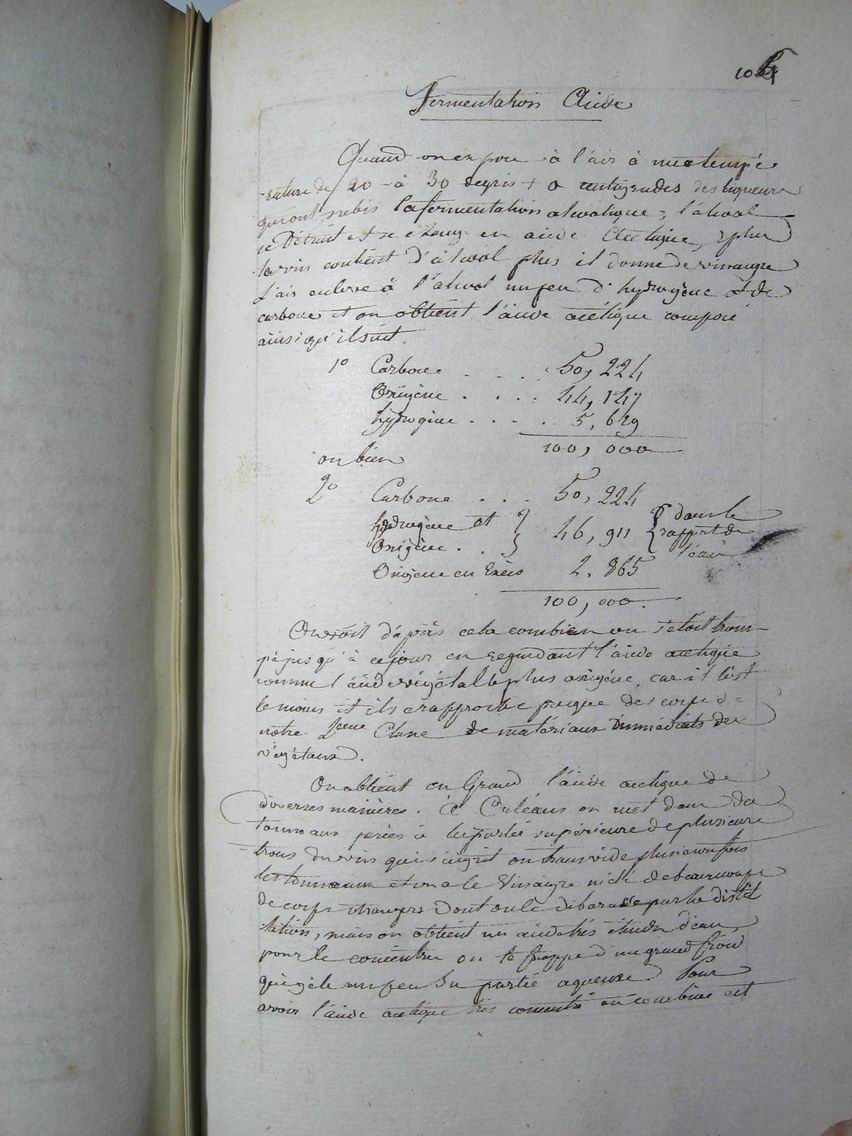 Fermentation Acide
Quand on expose à l'air à une tempé
-rature de 20 à 30 degrés + 0 centigrades des liqueurs
qui ont subis la fermentation alcoolique, l'alcool
se détruit et se change en acide acétique, plus
le vin contient d'alcool plus il donne de vinaigre
L'air enlève à l'alcool un peu d'hydrogène et de
carbone et on obtient l'acide acétique composé
ainsi qu'il suit.
1º Carbone . . . 50, 224
Oxigène . . . . 44, 147
hydrogène . . . . 5, 629
100, 000
ou bien
2º Carbone . . . 50, 224
hydrogène et } 46, 911 { dans le
Oxigène . . rapport de
l'eau
Oxigène en Excès 2. 865
100, 000.
On voit d'après cela combien on s'étoit trom-
pé jusqu'à ce jour en regardant l'acide acétique
comme l'acide végétal le plus oxigéné, car il l'est
le moins et il se rapproche presque des corps de
notre 2eme Classe de matériaux immédiats des
végétaux.
On obtient en Grand l'acide acétique de
diverses manières. à Orléans on met dans des
tonneaux percés à la partie supérieure de plusieurs
trous du vin qui s'aigrit on transvide plusieurs fois
les tonneaux et on a le Vinaigre mêlé de beaucoup
de corps étrangers dont on le débarasse par la distil
lation, mais on obtient un acide très étendu d'eau,
pour le concentrer on le frappe d'un grand froid
qui gèle un peu sa partie aqueuse. Pour
avoir l'acide acétique très concentré on combine cet